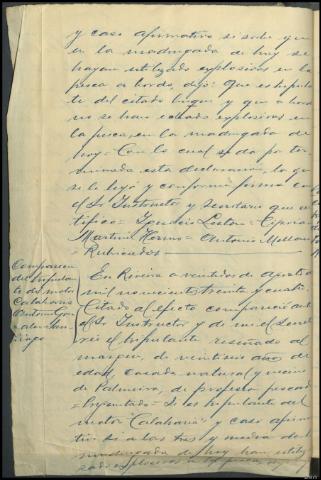 y caso afirmativo si sabe que
en la madrugada de hoy se
hayan utilizado explosivos en la
pesca a bordo, dijo: Que es tripulan
te del citado buque y que a bordo
no se han echado explosivos en
la pesca, en la madrugada de
hoy = Con lo cual se da por ter
minada esta declaración, la que
se leyó y conforme firma con
el Sr. Instructor y secretario que cer
tifico = 
Martín = Antonio
Rubricados
Comparecen
cia del tripulan
te de motor
Calahans
Antonio Gon
zalez San
tiago
En Riveira a veintidos de agosto
mil novecientos treinta y cuatro
Citado al efecto compareció ante
el Sr. Instructor y de mi el Secre
tario el tripulante reseñado al
margen, de veintiseis años de
edad, casado natural y vecino
de Palmeira, de profesión pescador
= Preguntado = Si es tripulante del
motor "Calahans" y caso afirma
tivo si a las tres y media de la
madrugada de hoy han utili
zado explosivos a la pesca